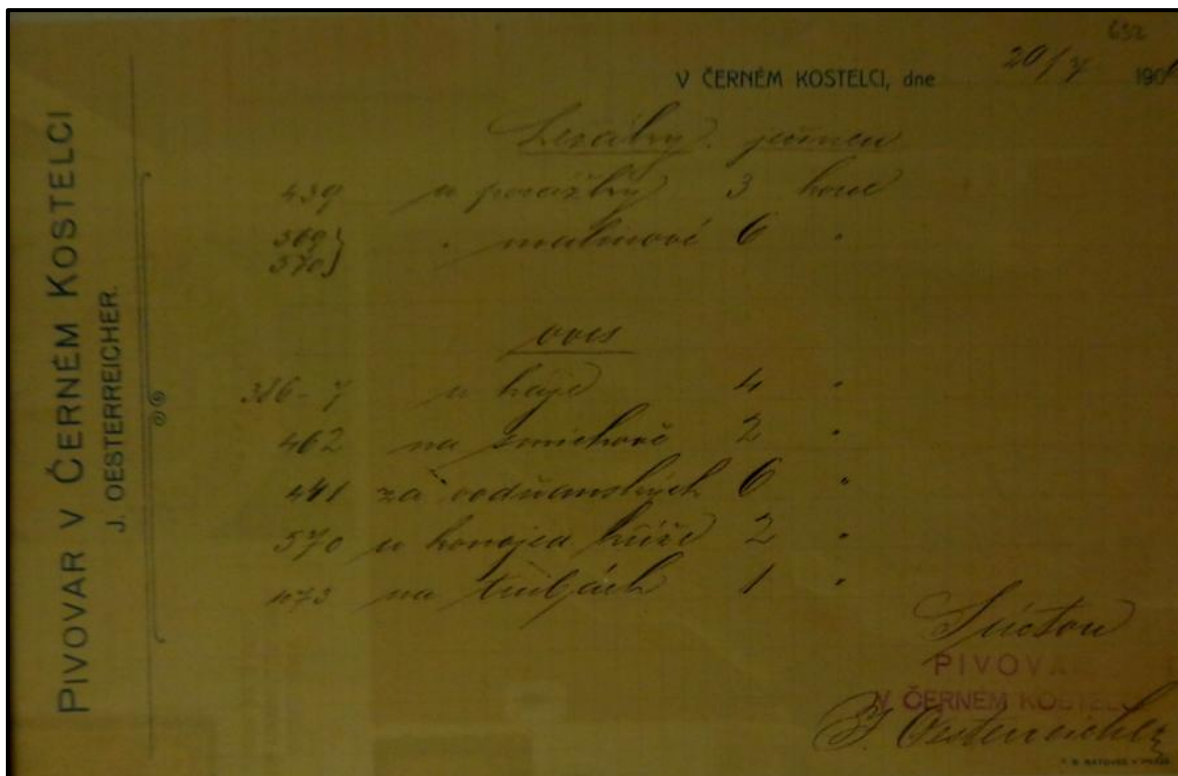 PIVOVAR V ČERNÉM KOSTELCI
J. OESTERREICHER.
632
V ČERNÉM KOSTELCI, dne 20/7 190
ječmen
439 u 3 korce
569 } " malinové 6 "
570 }
oves
386-7 u háje 4 "
462 na smíchově 2 "
441 za vodňanských 6 "
570 u konojed kříže 2 "
473 na trubjách 1 "
S úctou
PIVOVAR
V ČERNÉM KOSTELCI
J. Oesterreicher